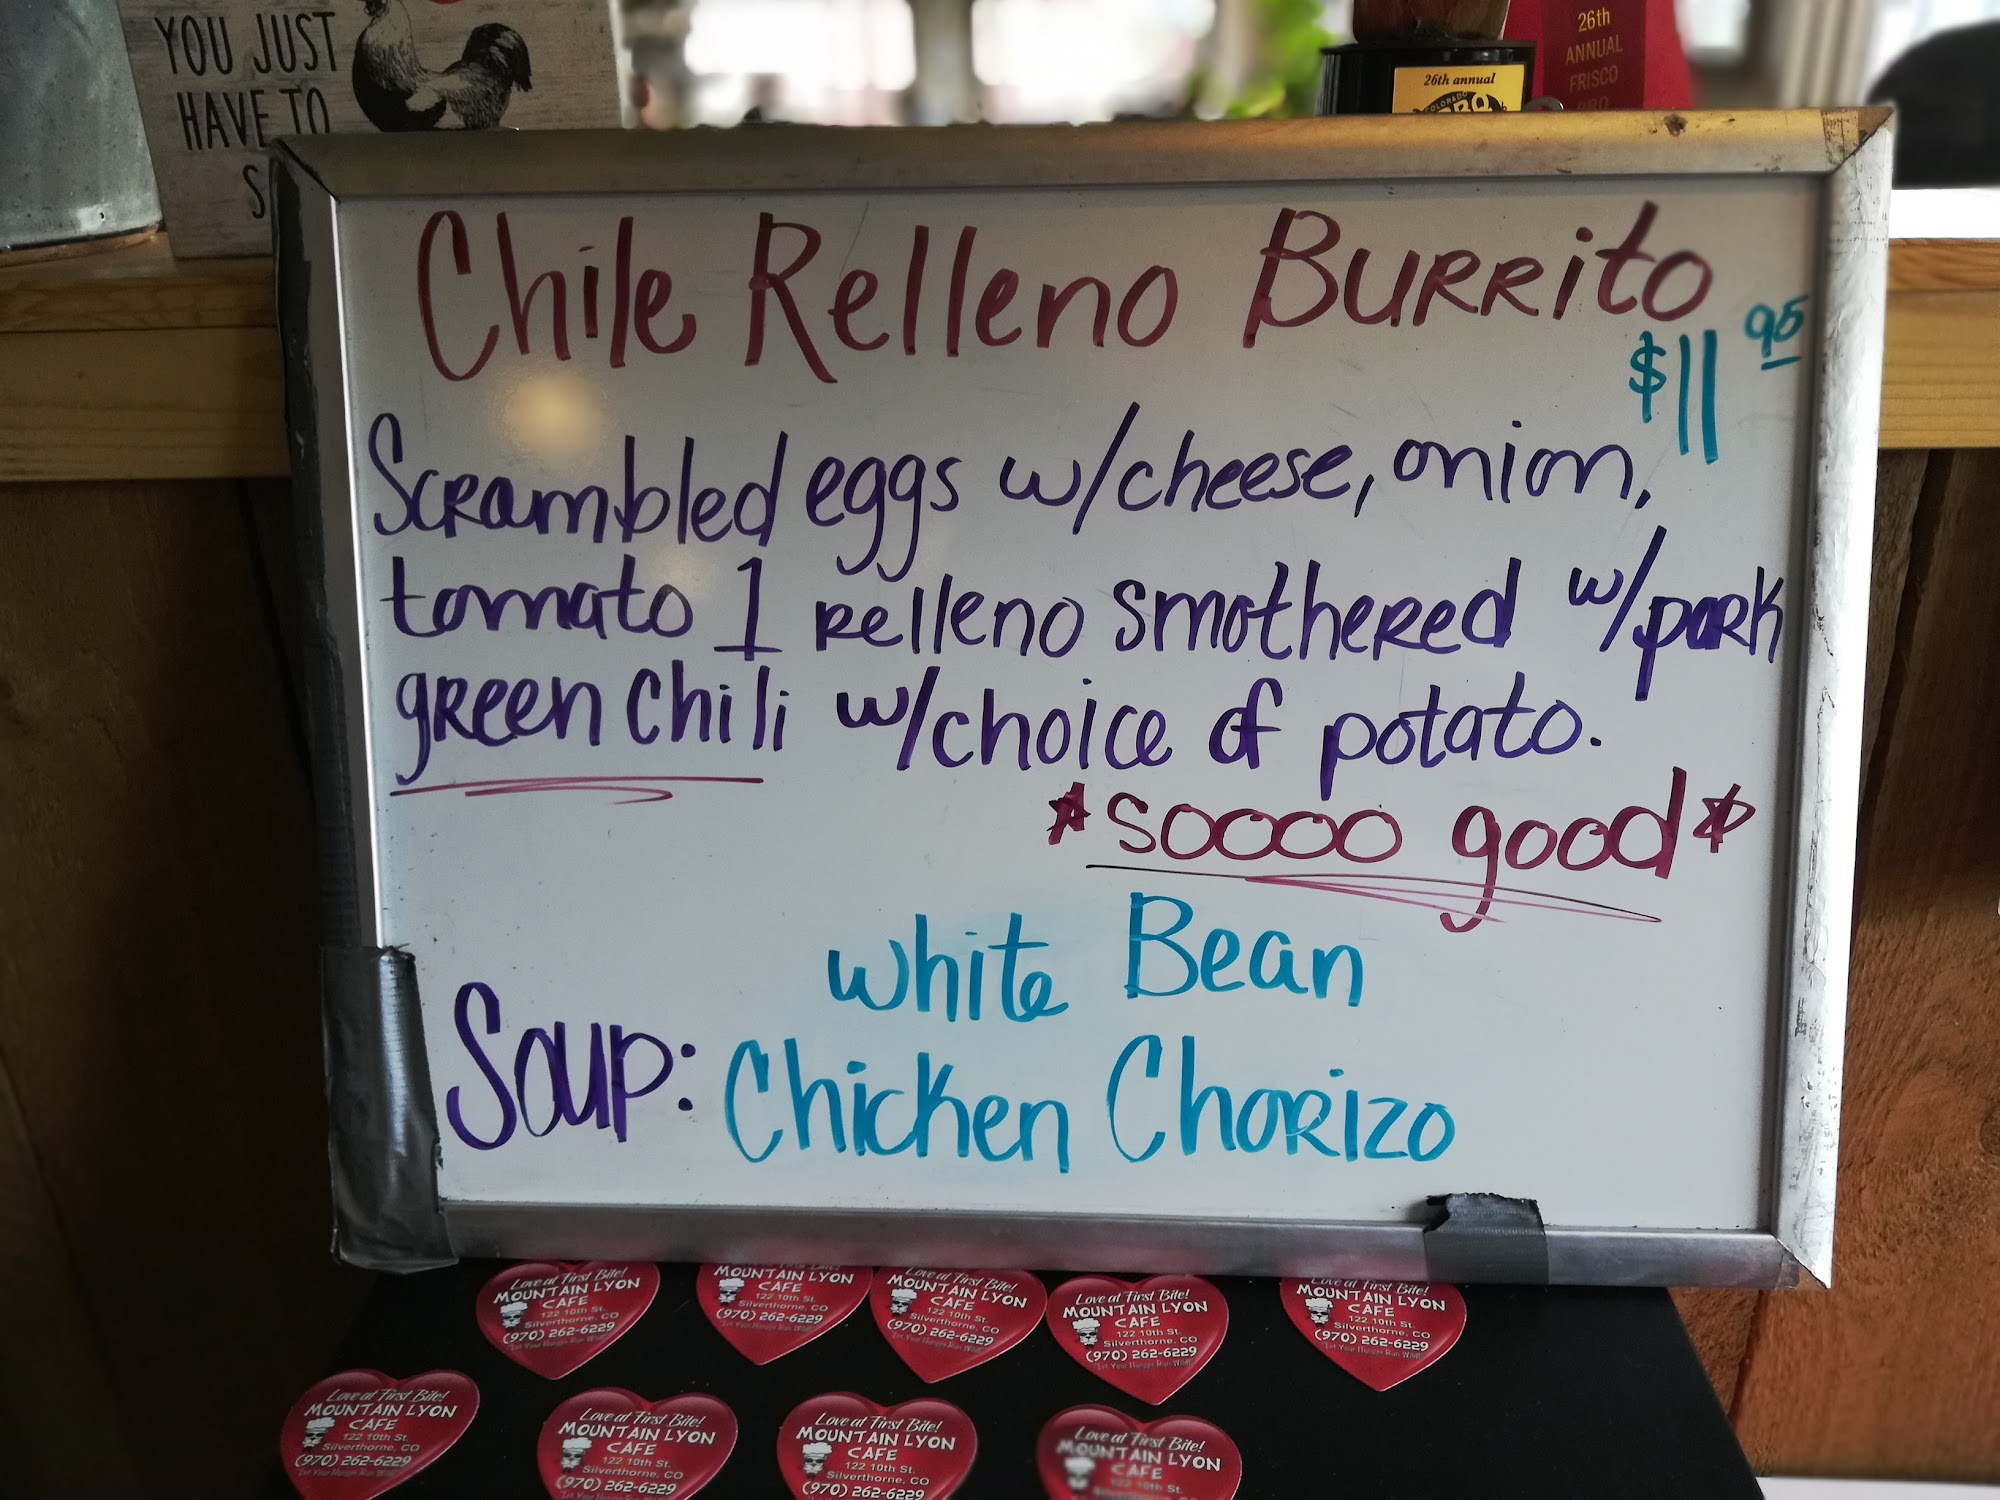 YOU JUST
HAVE TO
26th
ANNUAL
FRISCO
BBQ
26th annual
COLORADO
Chile Relleno Burrito
$11 95
Scrambled eggs w/cheese, onion,
tomato 1 relleno smothered w/pork
green chili w/choice of potato.
*soooo good*
White Bean
Soup: Chicken Chorizo
Love at First Bite!
MOUNTAIN LYON
CAFE
122 10th St.
Silverthorne, CO
(970) 262-6229
MOUNTAIN LYON
CAFE
122 10th St.
Silverthorne, CO
(970) 262-6229
"Let Your Hunger Run Wild!"
Love at First Bite!
MOUNTAIN LYON
CAFE
122 10th St.
Silverthorne, CO
(970) 262-6229
"Let Your Hunger Run Wild!"
Love at First Bite!
MOUNTAIN LYON
CAFE
122 10th St.
Silverthorne, CO
(970) 262-6229
"Let Your Hunger Run Wild!"
Love at First Bite!
MOUNTAIN LYON
CAFE
122 10th St.
Silverthorne, CO
(970) 262-6229
"Let Your Hunger Run Wild!"
Love at First Bite!
MOUNTAIN LYON
CAFE
122 10th St.
Silverthorne, CO
(970) 262-6229
"Let Your Hunger Run Wild!"
Love at First Bite!
MOUNTAIN LYON
CAFE
122 10th St.
Silverthorne, CO
(970) 262-6229
Love at First Bite!
MOUNTAIN LYON
CAFE
122 10th St.
Silverthorne, CO
(970) 262-6229
Love at First Bite!
MOUNTAIN LYON
CAFE
122 10th St.